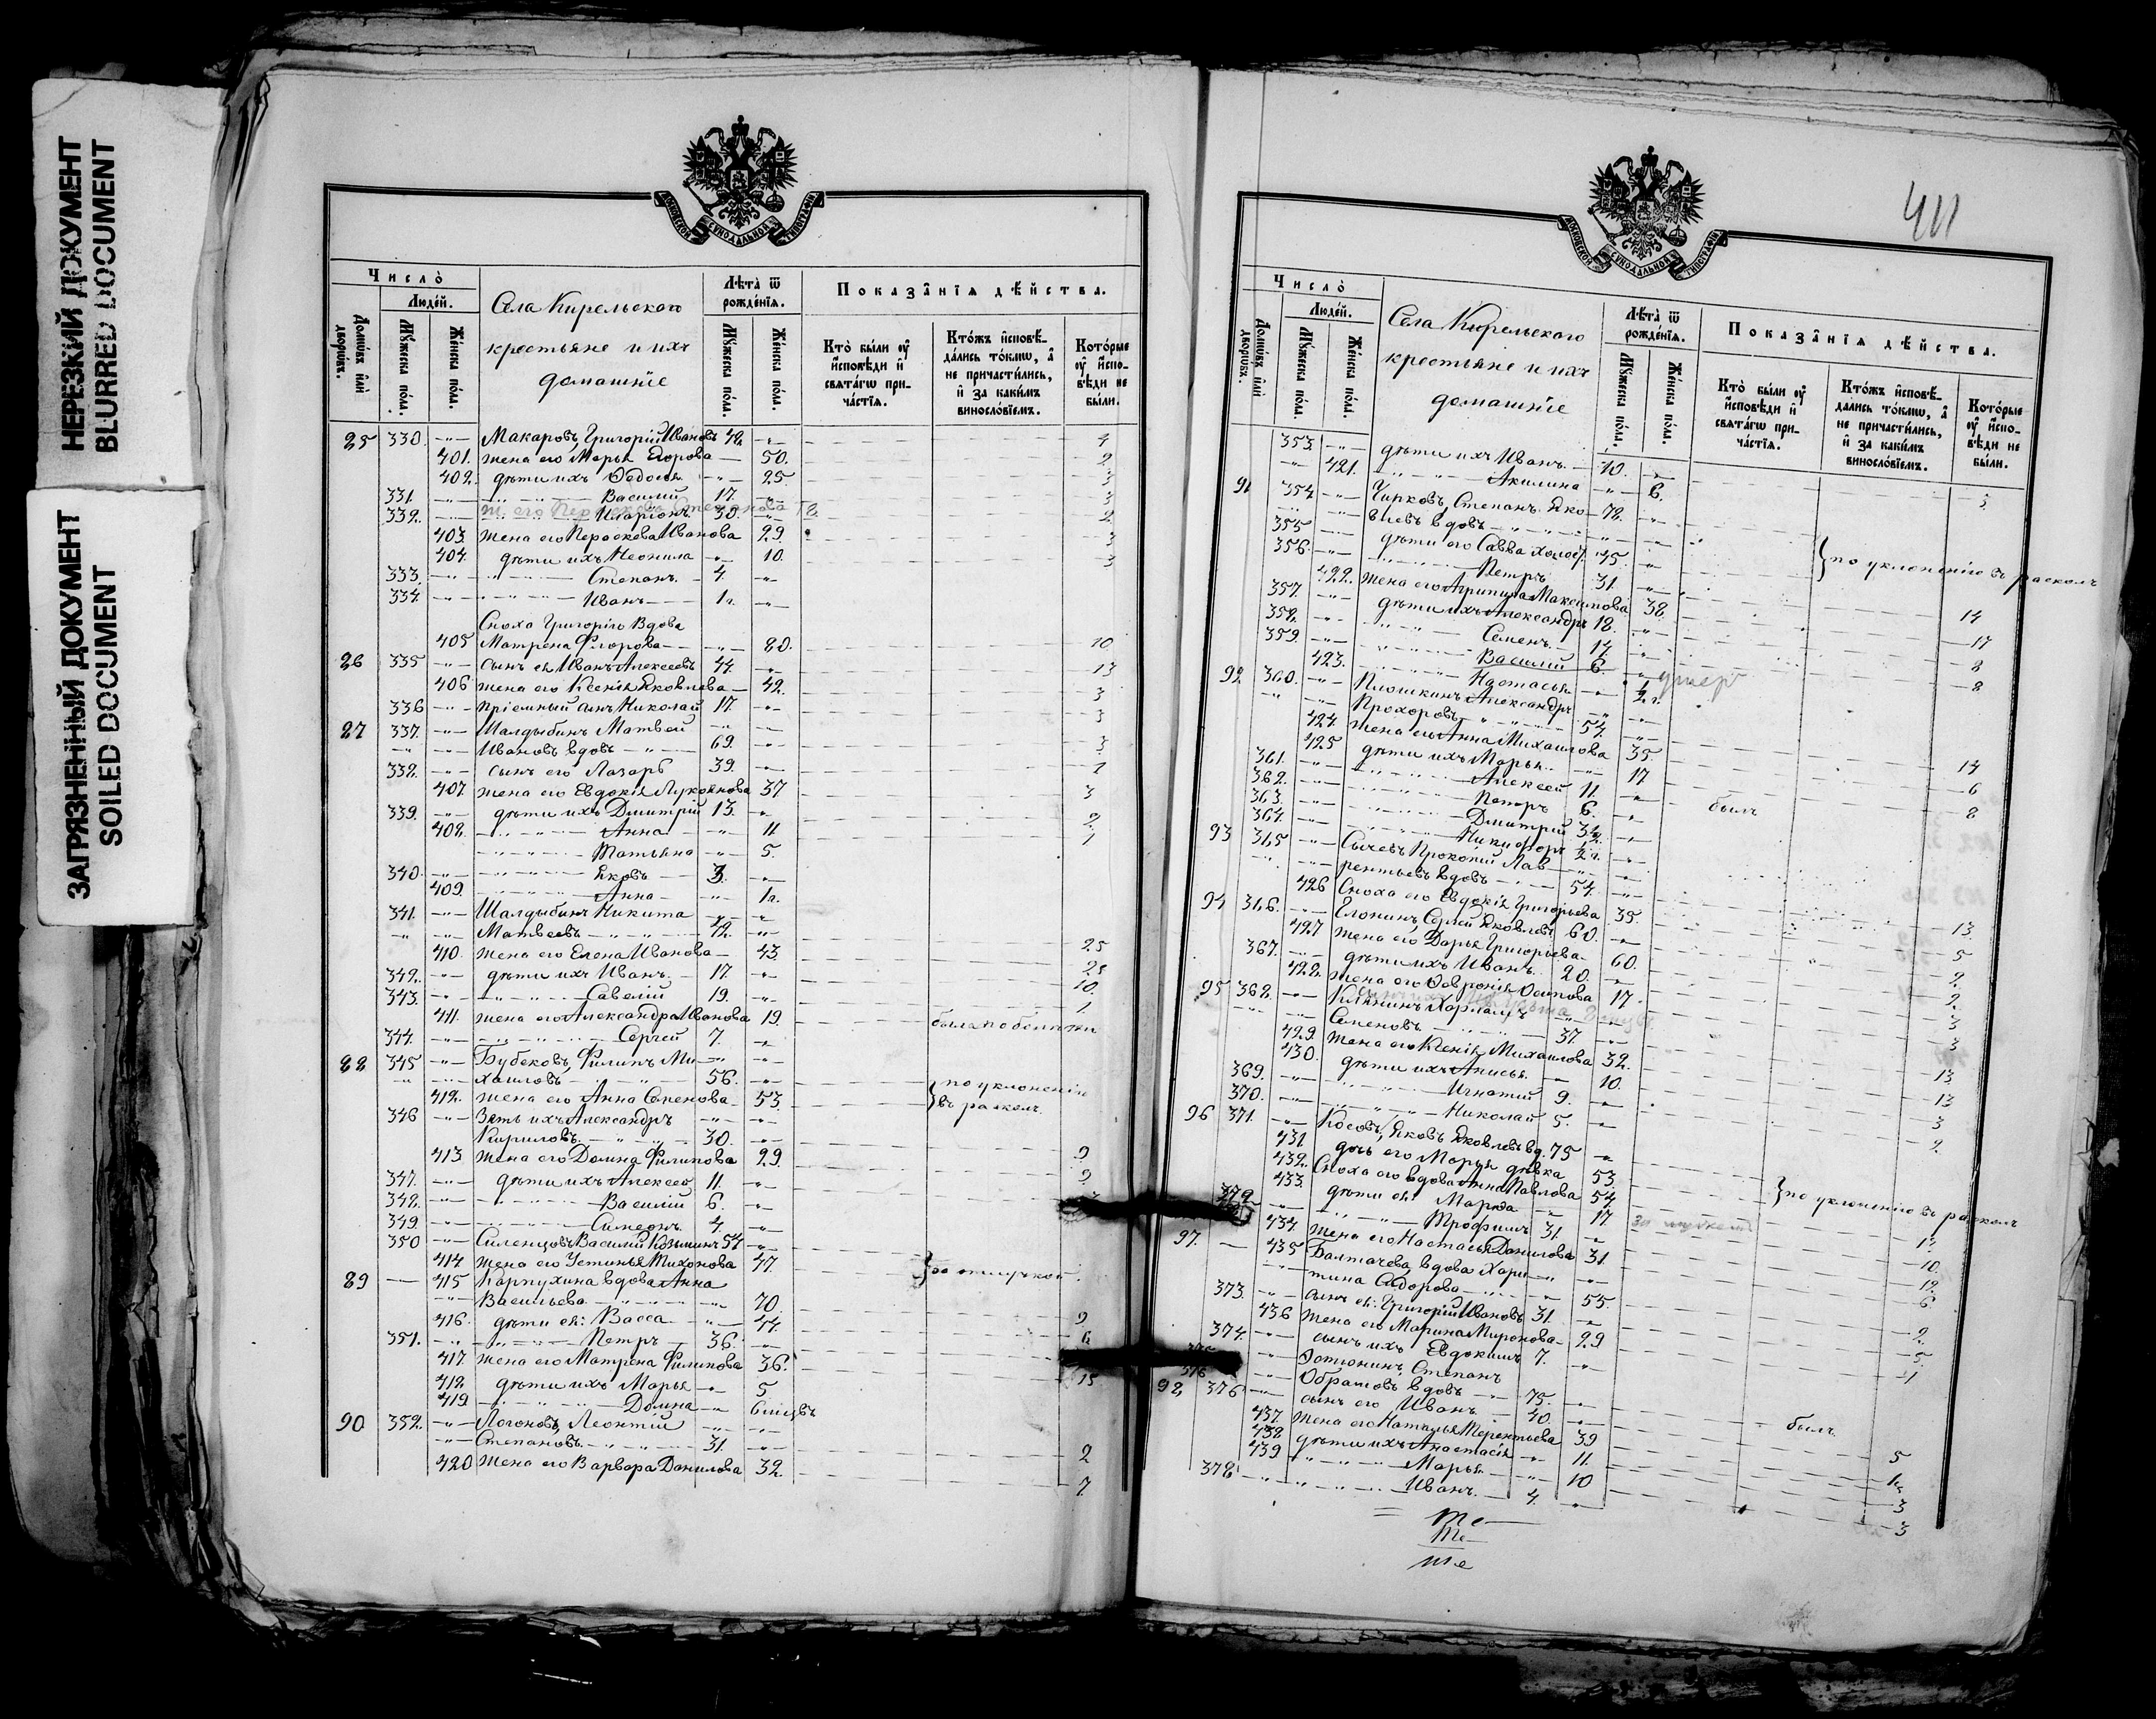 НЕРЕЗКИЙ ДОКУМЕНТ
BLURRED DOCUMENT
ЗАГРЯЗНЕННЫЙ ДОКУМЕНТ
SOILED DOCUMENT
МОСКОВСКОЙ СѴНОДАЛЬНОЙ ТИПОГРАФІИ
Число̀
Людей.
Домѡвъ и҆лѝ дворѡвъ.
Мꙋ́жеска по́ла.
Же́нска по́ла.
Села Кирельского
крестьяне и ихъ
домашніе
Лѣ́та ѿ рожде́нїѧ.
Мꙋ́жеска по́ла.
Же́нска по́ла.
Показа̑нїѧ дѣ́йства.
Кто̀ бы́ли ᲂу҆ и҆сповѣди и҆ свѧта́гѡ при-ча́стїѧ.
Кто́жъ и҆сповѣ́-дались то́кмѡ, а҆ не причасти́лись, и҆ за каки́мъ винослові́емъ.
Кото́рые ᲂу҆ и҆спо-вѣди не бы́ли.
25 330. Макаровъ, Григорій Ивановъ 48.
401. жена его Марья Егорова 50.
402. дѣти ихъ Ѳедосья 25
331. Василій 17.
332. Иларіонъ 30.
403. жена его Пераскева Иванова 29.
404. дѣти ихъ Неонила 10.
333. Степанъ 4.
334. Иванъ 1 г.
Сноха Григорія вдова
405 Матрена Флорова 80. 10
26 335 сынъ ея Иванъ Алексеевъ 44. 13
406 жена его Ксенія Яковлева 42. 3
336 пріемный сынъ Николай 17. 3
27 337. Шалдыбинъ Матвей
Ивановъ вдовъ 69. 3
338. сынъ его Лазарь 39.
407. жена его Евдокія Лукоянова 37 3
339. дѣти ихъ Дмитрій 13.
408. Анна 11
Татьяна 5.
340. Яковъ 3.
409. Анна 1 г.
341. Шалдыбинъ Никита
Матвеевъ 42.
410. жена его Елена Иванова 43 25
342. дѣти ихъ Иванъ 17.
343. Савелій 19. 10.
411. жена его Александра Иванова 19. 1
344. Сергей 7.
88 345 Бубековъ, Филипъ Ми-
хаиловъ 56.
412. жена его Анна Семенова 53. по уклоненію въ расколъ
346 Зять ихъ Александръ
Кириловъ 30.
413 жена его Домна Филипова 29. 9
347. дѣти ихъ Алексей 11. 9
348. Василій 6.
349. Симеонъ 4.
350 Силенцовъ Василій Козьминъ 54
414 жена его Устинья Тихонова 47. за отлучкой.
89 415 Карпухина вдова Анна
Васильева 70.
416. дѣти ея: Васса 44. 9
351. Петръ 36. 6
417. жена его Матрена Филипова 36. 15
418. дѣти ихъ Марья 5
419. Домна 6 мѣсцвъ
90 352. Логоновъ, Леонтій
Степановъ 31. 2
420 жена его Варвара Данилова 32. 7
411
МОСКОВСКОЙ СѴНОДАЛЬНОЙ ТИПОГРАФІИ
Число̀
Людей.
Домѡвъ и҆лѝ дворѡвъ.
Мꙋ́жеска по́ла.
Же́нска по́ла.
Села Кирельского
крестьяне и ихъ
домашніе
Лѣ́та ѿ рожде́нїѧ.
Мꙋ́жеска по́ла.
Же́нска по́ла.
Показа̑нїѧ дѣ́йства.
Кто̀ бы́ли ᲂу҆ и҆сповѣди и҆ свѧта́гѡ при-ча́стїѧ.
Кто́жъ и҆сповѣ́-дались то́кмѡ, а҆ не причасти́лись, и҆ за каки́мъ винослові́емъ.
Кото́рые ᲂу҆ и҆спо-вѣди не бы́ли.
353. дѣти ихъ Иванъ 10.
421. Акилина 6. 3
91 354 Чирковъ, Степанъ Яко- 72.
влевъ вдовъ
355 дѣти его Савва холост. 45. по уклоненію въ расколъ
356. Петръ 31.
422. жена его Агрипина Максимова 38.
357. дѣти ихъ Александръ 18. 14
358. Семенъ 14. 17
359. Василій 6. умеръ 8
423. Настасья 8
92 360. Плошкинъ Александръ
Прохоровъ 54.
424. жена его Анна Михаилова 35.
425 дѣти ихъ Марья 17 14
361. Алексей 11. 6
362. Петръ 6. былъ 8
363. Дмитрій
364. Никифоръ
93 365 Сычевъ Прокопій Лав-
рентьевъ вдовъ 54.
426 Сноха его Евдокія Григорьева 35.
94 366. Яковлевъ 60. 13
427 жена его Дарья Григорьева 60. 5
367. дѣти ихъ Иванъ 20. 2
428. жена его Ѳевронія Осипова 17. 2
95 368. Килянинъ Харлампъ 3
Семеновъ 37. 3
429. жена его Ксенія Михаилова 32.
430. дѣти ихъ Анисья 10. 13
369. Игнатій 9. 13
370. Николай 5. 3
96 371. Косовъ, Яковъ Яковлевъ вд. 75 2.
431 дочь его Марья дѣвка 53.
432. Сноха его вдова Анна Павлова 54 по уклоненію въ расколъ
433. дѣти ея: Марѳа 17
372 Трофимъ 31. 12.
434 жена его Настасья Данилова 31. 10.
97. 435 Балтачева, вдова Хари- 12.
тина Сидорова 55. 6
373. сынъ ея: Григорій Ивановъ 31.
436 жена его Марина Миронова 29 2.
374. сынъ ихъ Евдокимъ 7. 5.
Ѳотюнинъ, Степанъ 1
98 376 Абрамовъ вдовъ 75.
сынъ его Иванъ 40. былъ
437. жена его Наталья Терентьева 39
438 дѣти ихъ Анастасія 11. 5
439 Марья 10
378 Иванъ 4. 3
3